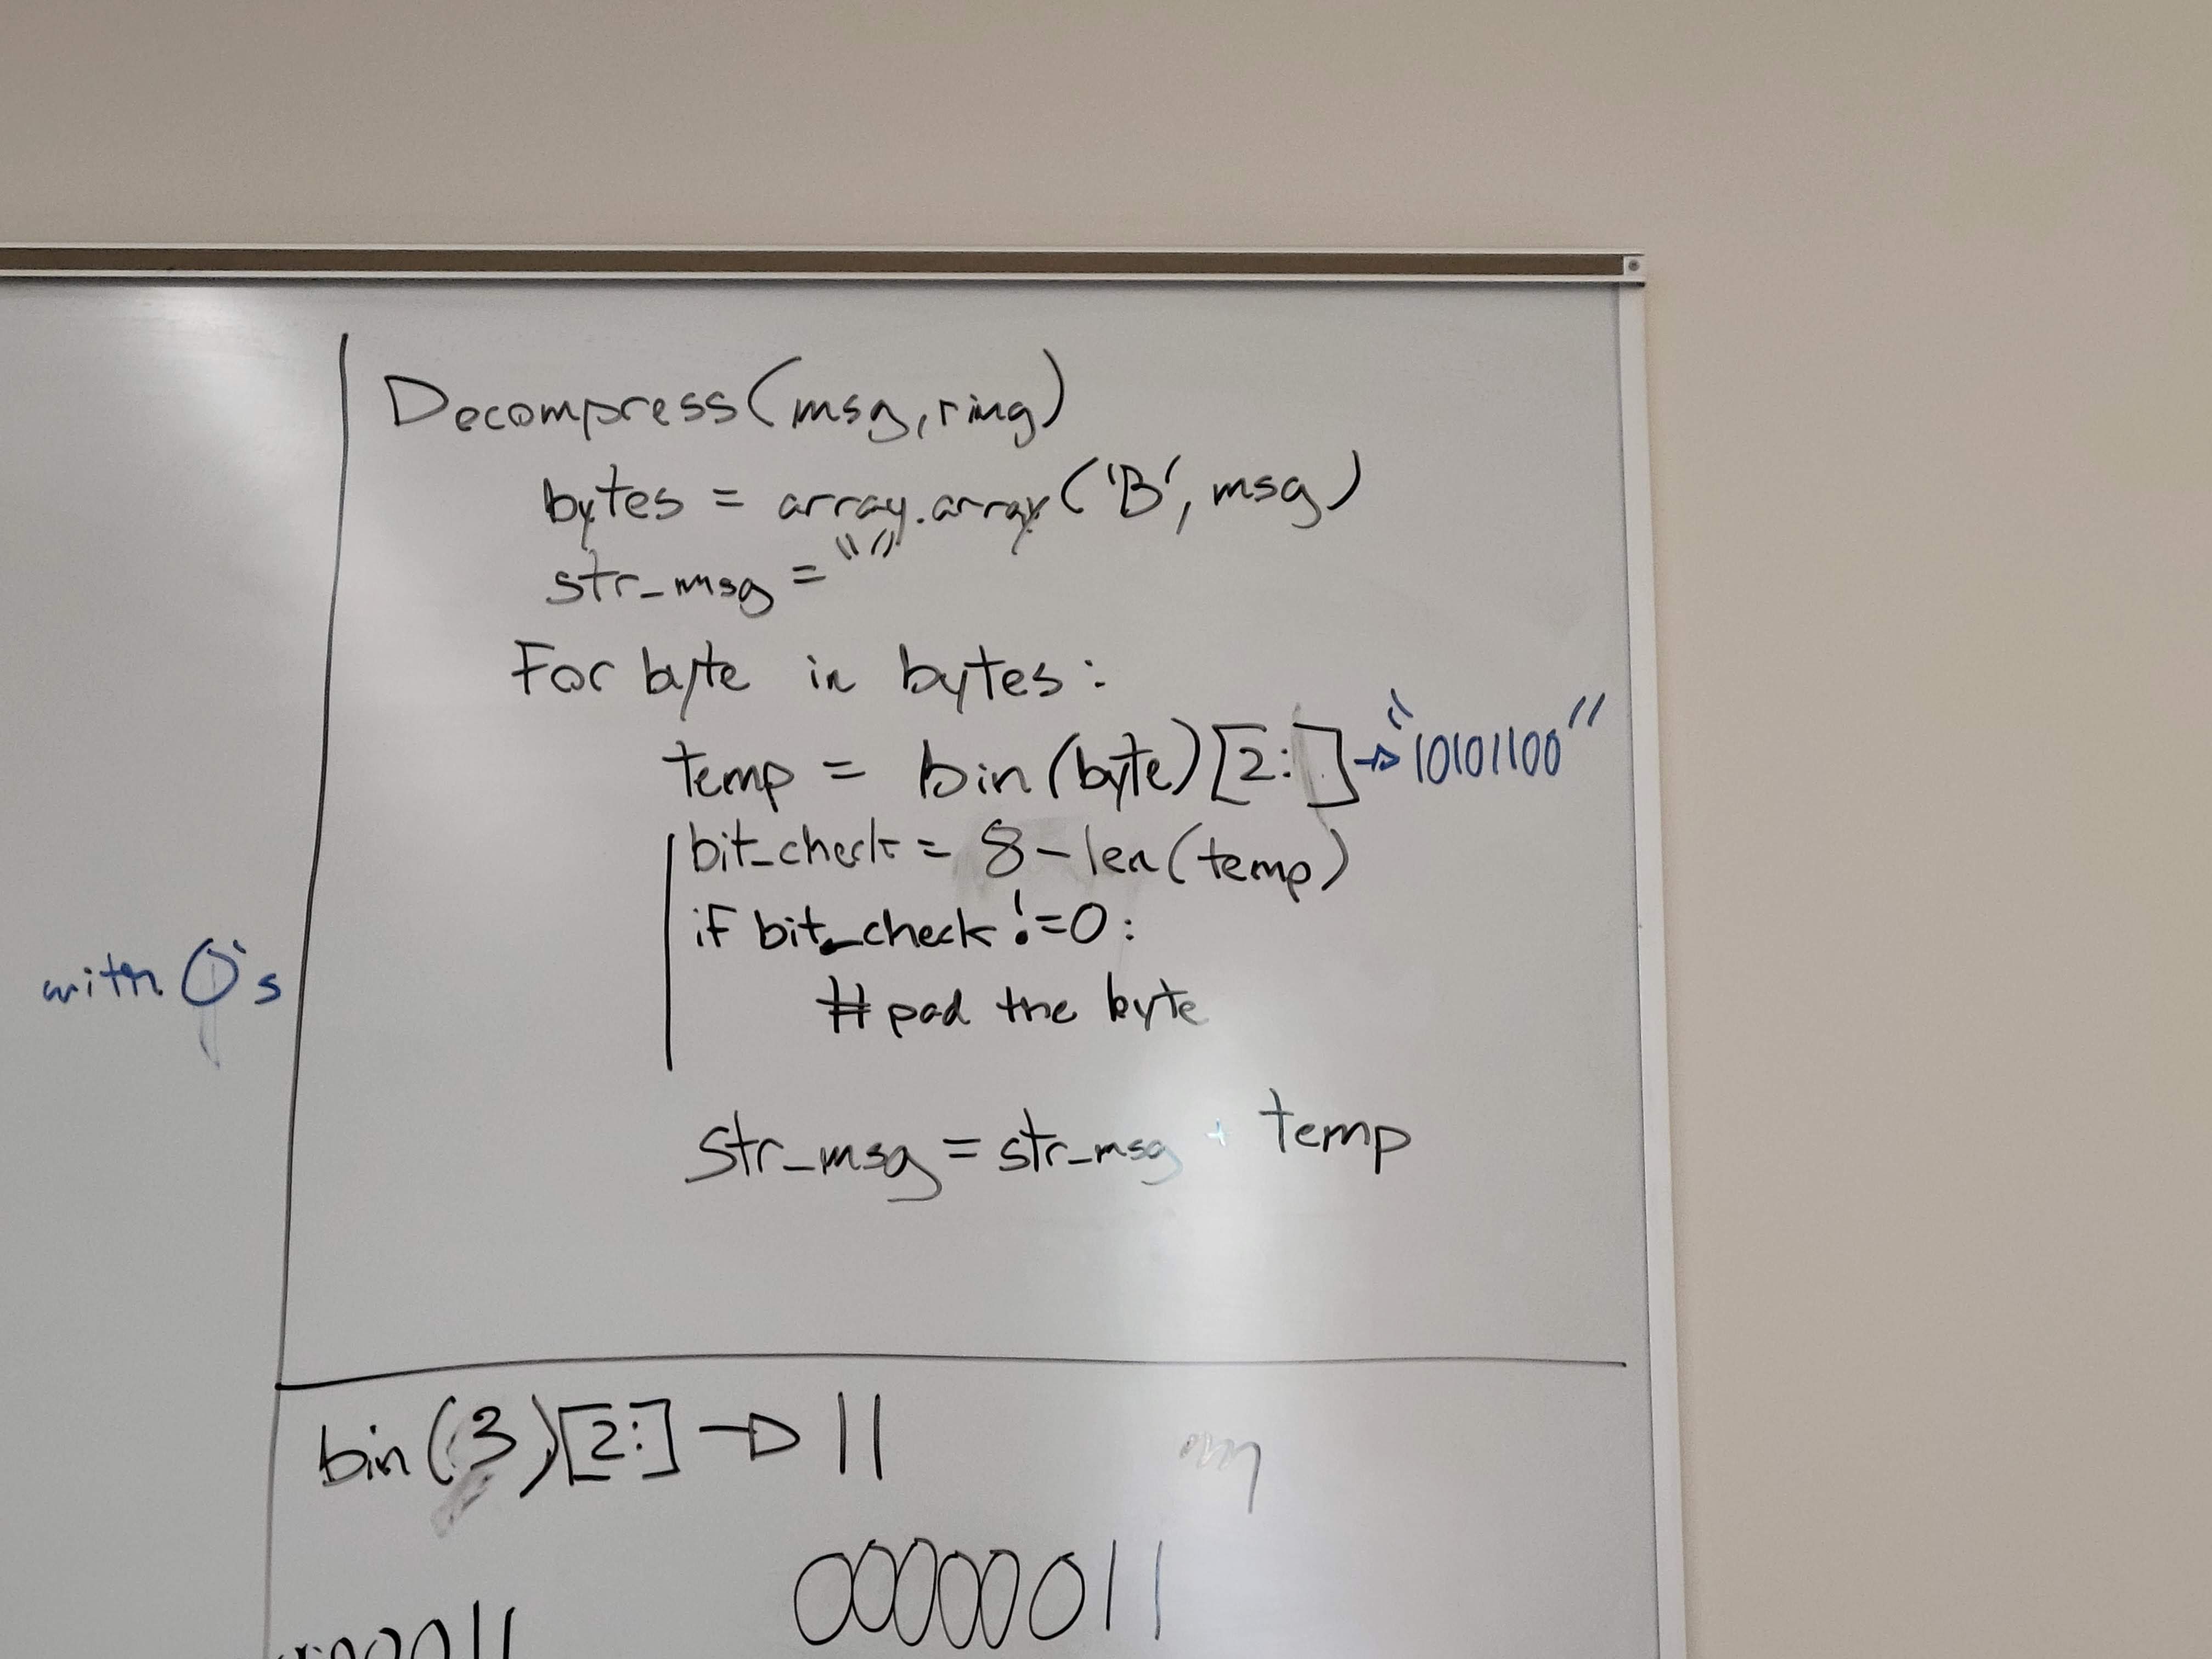 Decompress(msg, ring)
bytes = array.array('B', msg)
str_msg = ""
For byte in bytes:
temp = bin(byte)[2:] → "10101100"
bit_check = 8-len(temp)
if bit_check != 0:
# pad the byte
with 0's
str_msg = str_msg + temp
bin(3)[2:] → 11
00000011